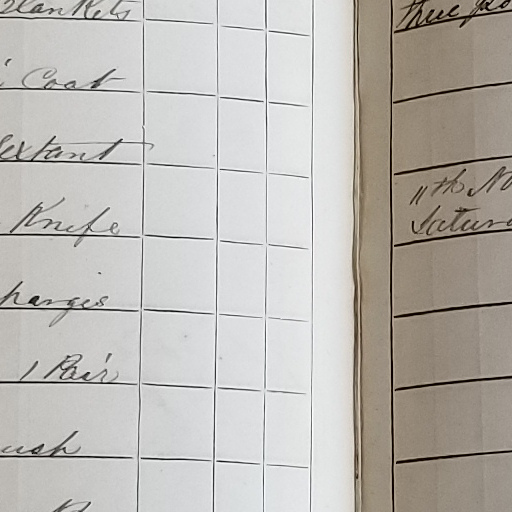 Blankets
Coat
Sextant
Knife
harges
1 Pair
ush
three
11th No
Satur